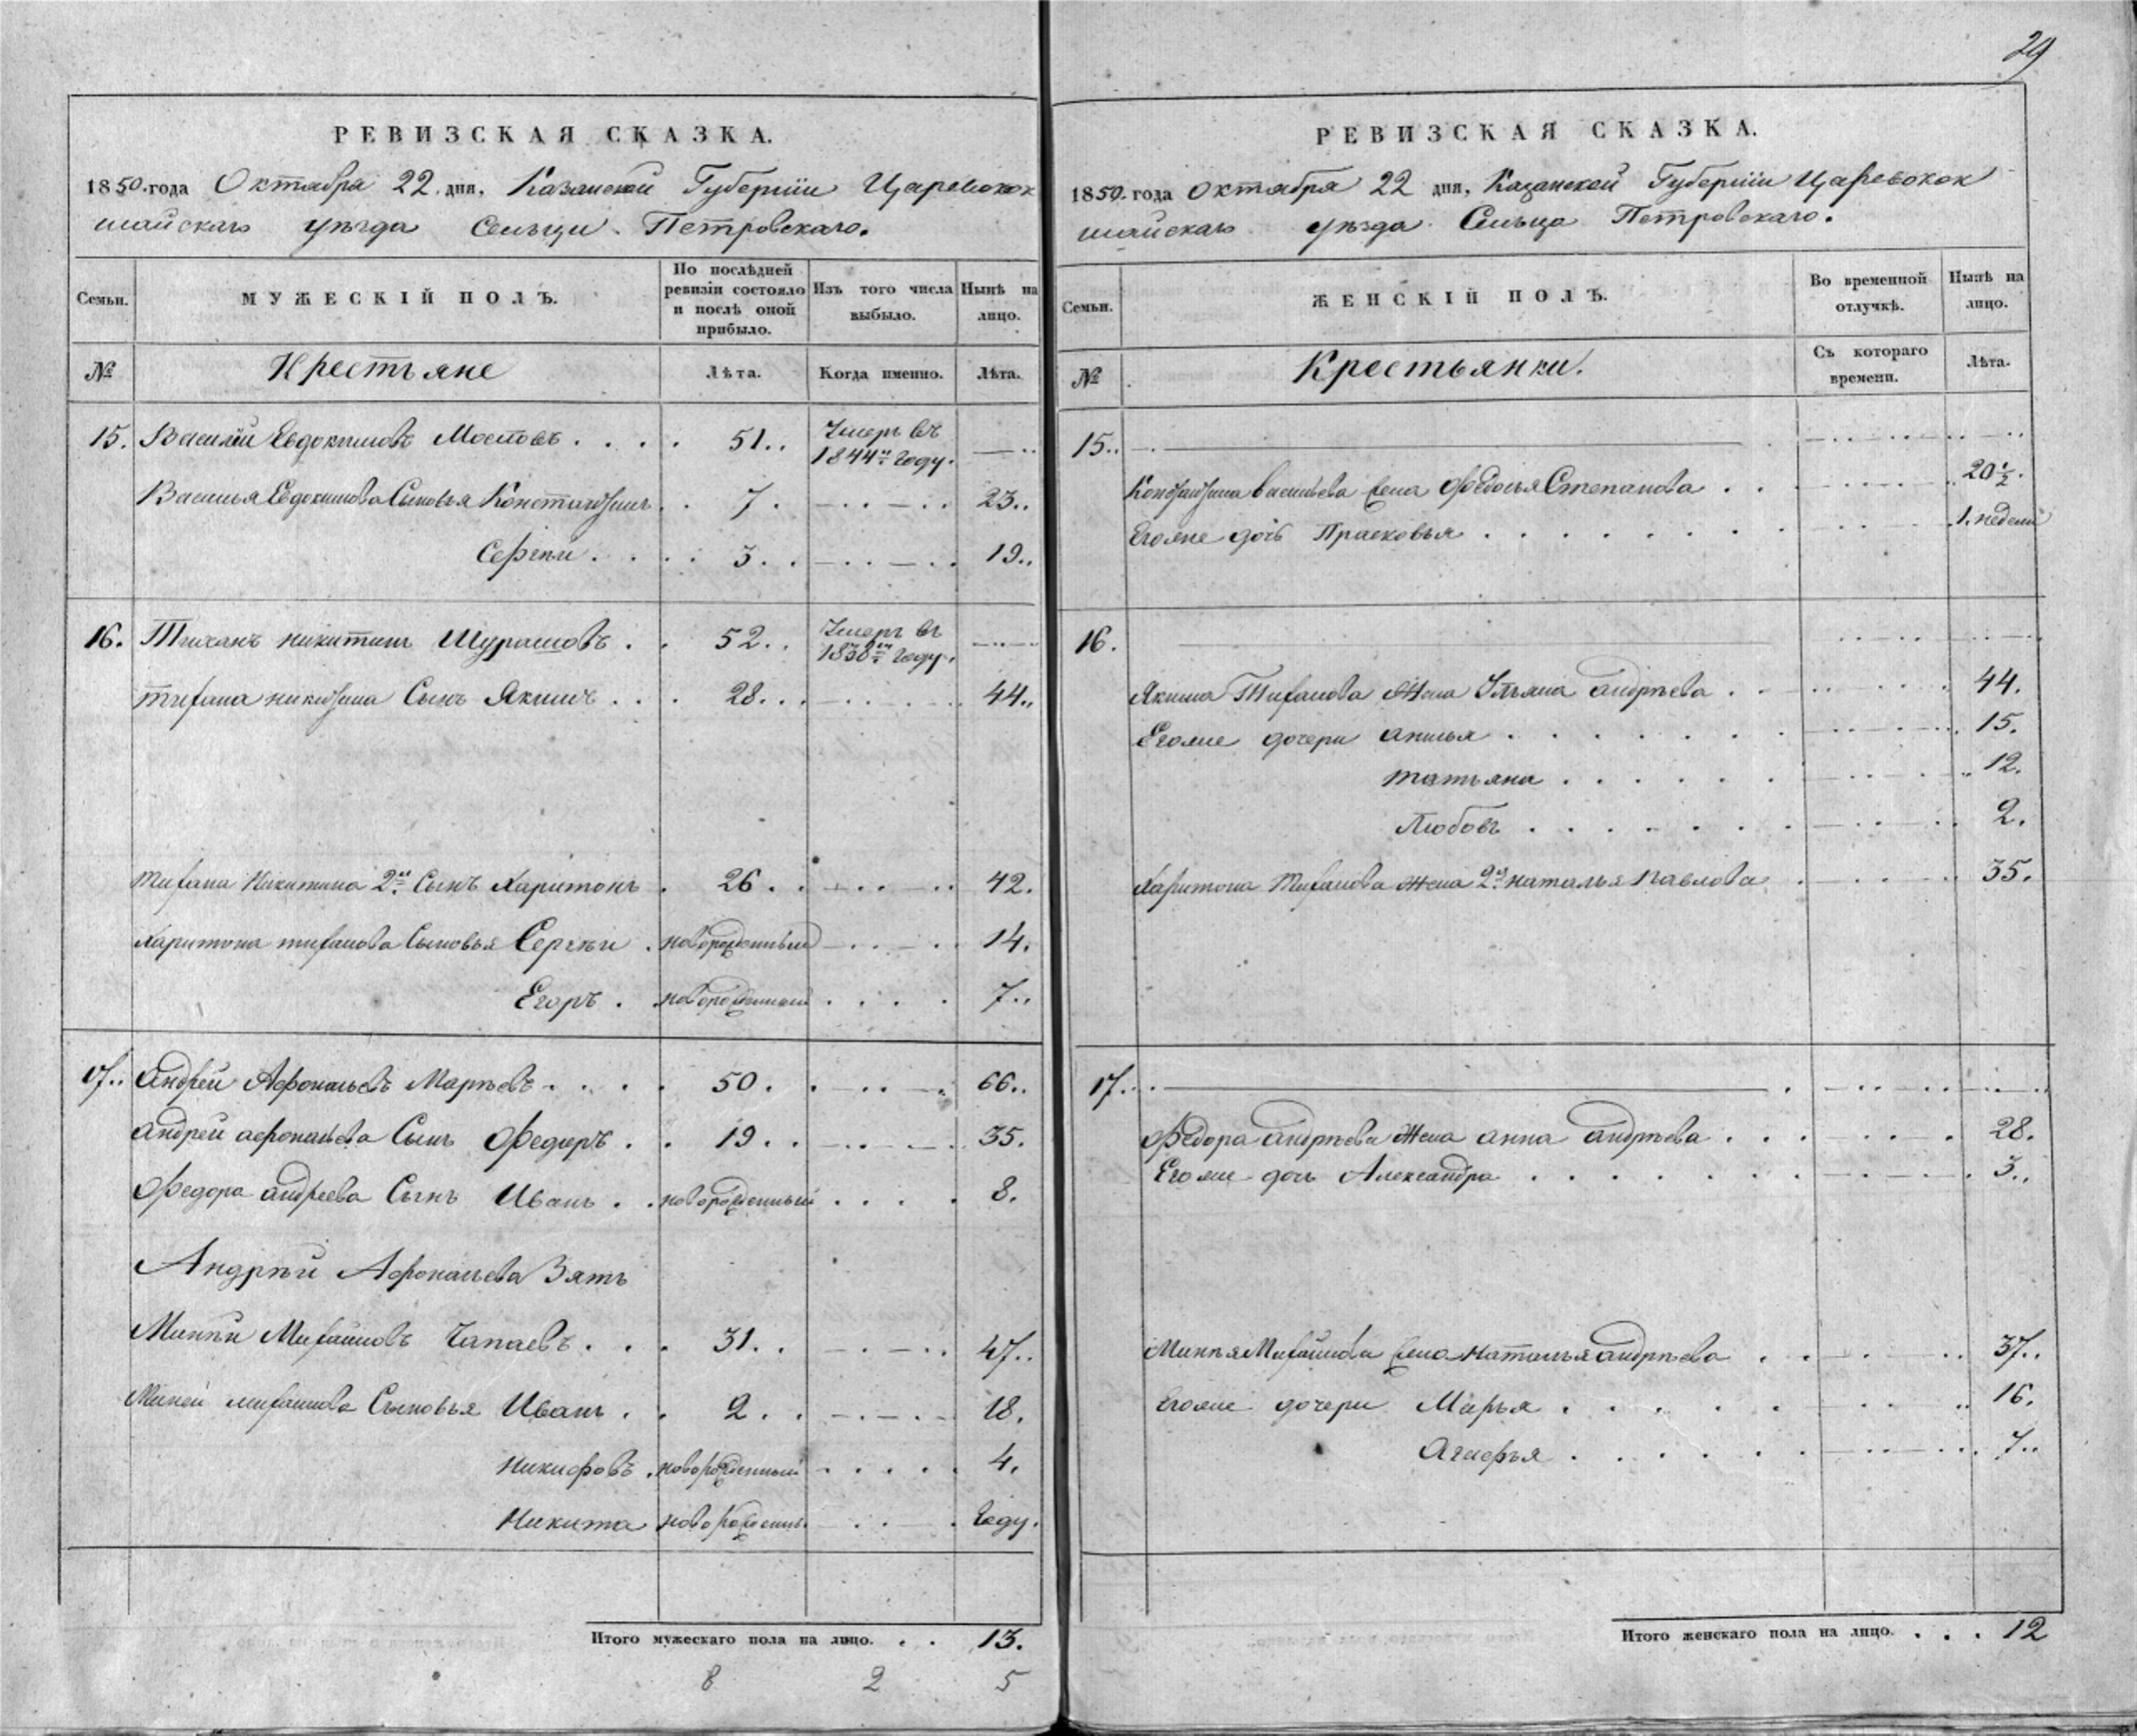 29
РЕВИЗСКАЯ СКАЗКА.
1850. года Октября 22. дня, Казанской Губернiи Царевокок
шайскаго уѣзда Сельца Петровскаго.
Семьи.
МУЖЕСКIЙ ПОЛЪ.
По послѣдней ревизiи состояло и послѣ оной прибыло.
Изъ того числа выбыло.
Нынѣ на лицо.
№
Крестьяне
Лѣта.
Когда именно.
Лѣта.
15. Василiй Евдокимовъ 51. Умеръ въ 1844мъ Году.
Василья Евдокимова Сыновья Константинъ 7. 23.
Сергѣи 3. 19.
16. Никитинъ 52. Умеръ въ Году.
Никитина Сынъ Якимъ 28. 44.
Никитина 2й Сынъ Харитонъ 26. 42.
Харитона Сыновья Сергѣи новорожденный 14.
Егоръ новорожденный 7.
17. Андрей Афонасьевъ 50. 66.
Андрей Афонасьева Сынъ Федоръ 19. 35.
Федора Андреева Сынъ Иванъ новорожденный 8.
Андрѣй Афонасьева Зять
Минѣй Михайловъ Чапаевъ 31. 47.
Миней Михайлова Сыновья Иванъ 2. 18.
Никифоръ новорожденный 4.
Никита новорожденны Году.
Итого мужескаго пола на лицо. 13.
8 2 5
РЕВИЗСКАЯ СКАЗКА.
1850. года Октября 22 дня, Казанской Губернiи Царевокок
шайскаго уѣзда Сельца Петровскаго.
Семьи.
ЖЕНСКIЙ ПОЛЪ.
Во временной отлучкѣ.
Нынѣ на лицо.
№
Крестьянки.
Съ котораго времени.
Лѣта.
15.
Константина Васильева Жена Федосья Степанова 20½.
Егоже дочь Прасковья 1. недели
16.
Якима Жена Ульяна Андрѣева 44.
Егоже дочери Анисья 15.
Татьяна 12.
Любовь 2.
Харитона Жена 2я Наталья Павлова 35.
17.
Федора Андрѣева Жена Анна Андрѣева 28.
Егоже дочь Александра 3.
Минѣя Михайлова Жена Наталья Андрѣева 37.
Егоже дочери Марья 16.
Агафья 7.
Итого женскаго пола на лицо. 12